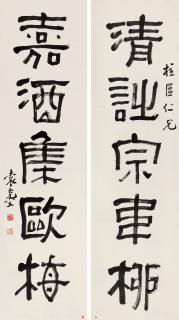 清詩宗韋柳
臣仁兄
嘉酒集歐梅
袁克文